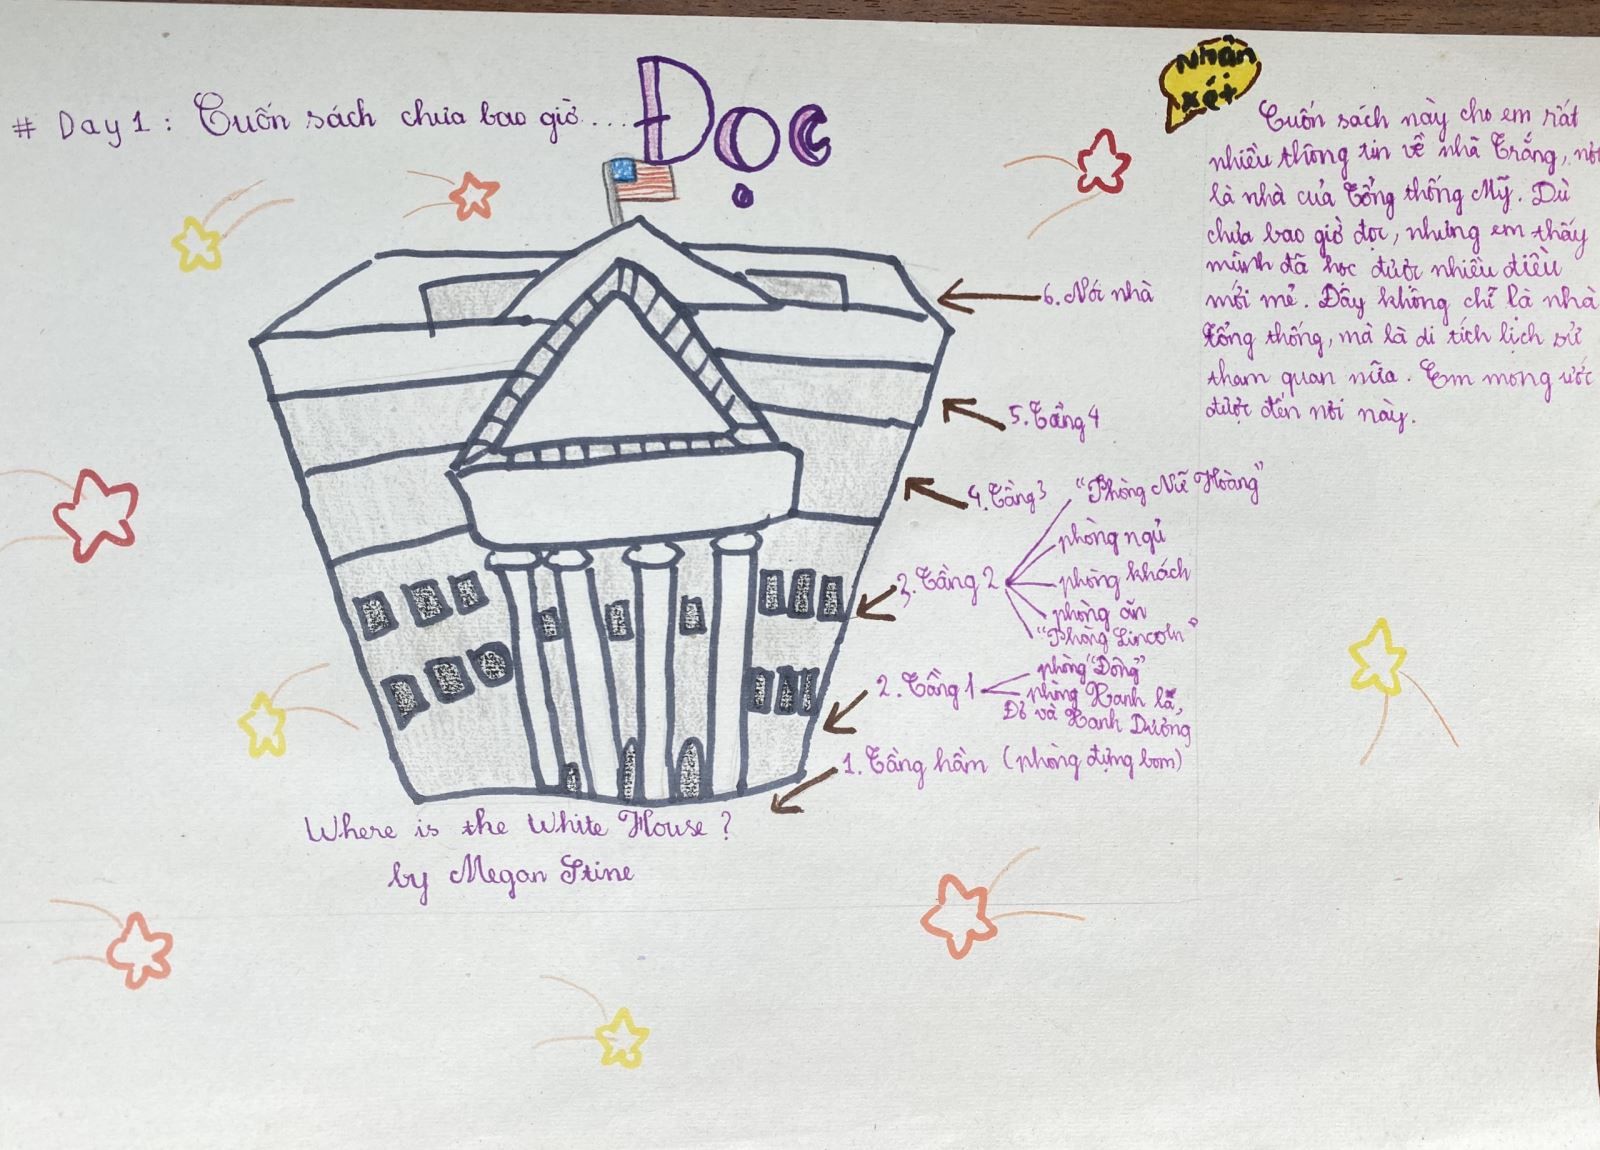 # Day 1 : Cuốn sách chưa bao giờ... Đọc
Nhận
xét
Cuốn sách này cho em rất
nhiều thông tin về nhà Trắng, nơi
là nhà của Tổng thống Mỹ. Dù
chưa bao giờ đọc, nhưng em thấy
mình đã học được nhiều điều
mới mẻ. Đây không chỉ là nhà
tổng thống, mà là di tích lịch sử
tham quan nữa. Em mong ước
được đến nơi này.
6. Nóc nhà
5. Tầng 4
4. Tầng 3
3. Tầng 2
"Phòng Nữ Hoàng"
phòng ngủ
phòng khách
phòng ăn
"Phòng Lincoln"
2. Tầng 1
phòng "Đông"
phòng Xanh lá,
Đỏ và Xanh Dương
1. Tầng hầm (phòng đựng bom)
Where is the White House ?
by Megan Stine